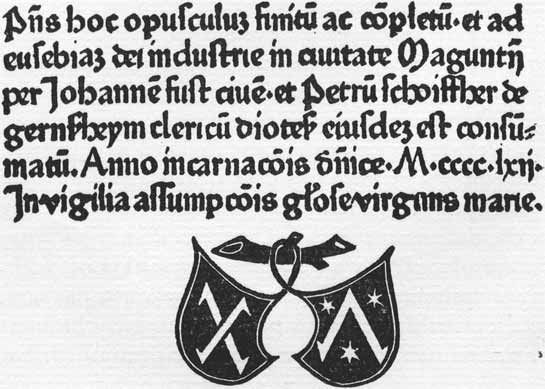 Pn̄s hoc opusculuz finitū ac cōpletū. et ad
eusebiaz dei industrie in ciuitate Maguntij
per Johannē fust ciuē. et Petrū schoiffher de
gernsheym clericū diotes̄ eiusdez est consū-
matū. Anno incarnacōis dn̄ice. M. cccc. lxij.
In vigilia assumpcōis gl̄ose virginis marie.